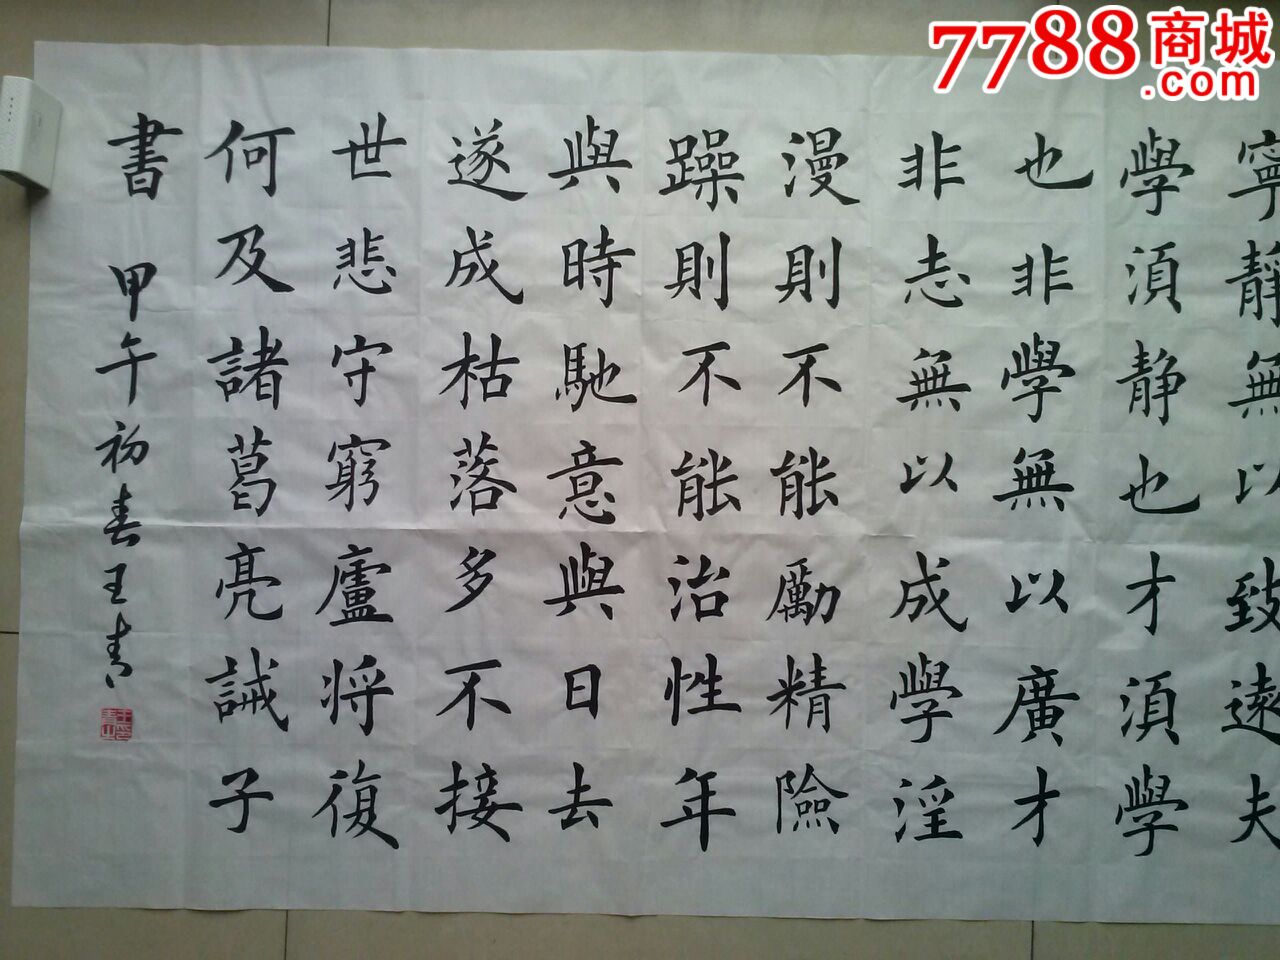 7788商城
.com
寧靜無以致遠夫
學湏静也才湏學
也非學無以廣才
非志無以成學淫
漫則不能勵精險
躁則不能治性年
與時馳意與日去
遂成枯落多不接
世悲守窮廬将復
何及諸葛亮誡子
書 甲午初春王青